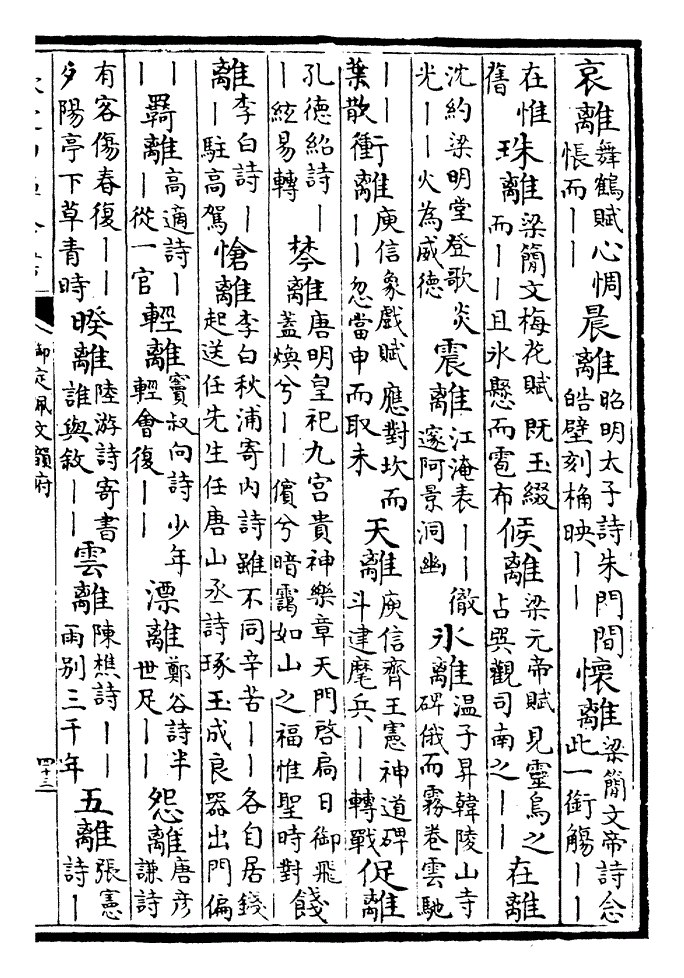 哀離舞鶴賦心惆悵而丨丨晨離昭明太子詩朱門間皓壁刻桷映丨丨懷離梁簡文帝詩念此一銜觴丨丨
在惟舊珠離梁簡文梅花賦既玉綴而丨丨且氷懸而雹布候離梁元帝賦見靈烏之占巽觀司南之丨丨在離
沈約梁明堂登歌炎光丨丨火為威德震離江淹表丨丨徹邃阿景洞幽氷離温子昇韓陵山寺碑俄而霧卷雲馳
丨丨葉散衝離庾信象戲賦應對坎而丨丨忽當申而取未天離庾信齊王憲神道碑斗建麾兵丨丨轉戰促離
孔德紹詩丨丨絃易轉棼離唐明皇祀九宫貴神樂章天門啓扃日御飛蓋煥兮丨丨儐兮暗靄如山之福惟聖時對餞
離李白詩丨丨駐高駕愴離李白秋浦寄内詩雖不同辛苦丨丨各自居錢起送任先生任唐山丞詩琢玉成良器出門偏
丨丨羇離高適詩丨丨從一官輕離竇叔向詩少年輕會復丨丨漂離鄭谷詩半世足丨丨怨離唐彦謙詩
有客傷春復丨丨夕陽亭下草青時暌離陸游詩寄書誰與敘丨丨雲離陳樵詩丨丨雨別三千年五離張憲詩丨
御定佩文韻府
四十三